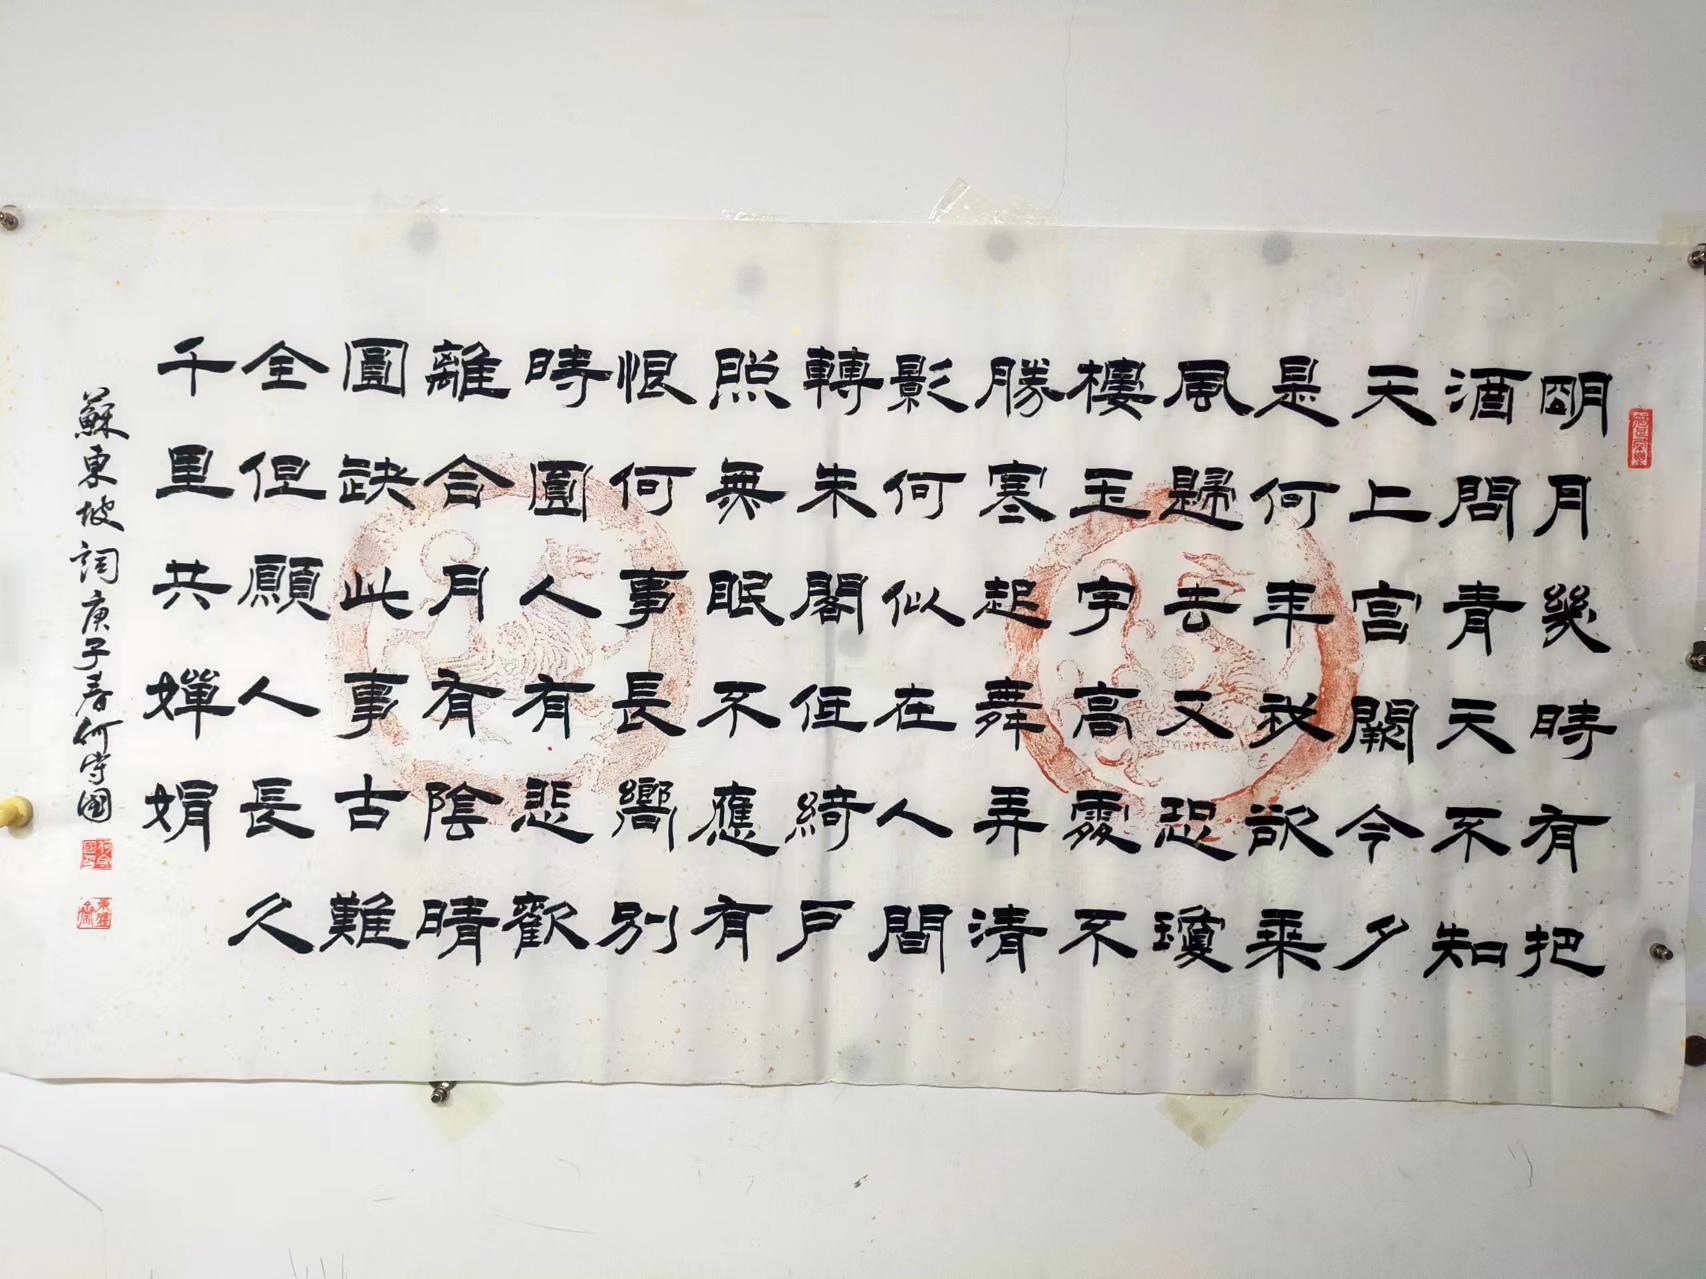 明月幾時有把
酒問青天不知
天上宮闕今夕
是何年我欲乘
風歸去又恐瓊
樓玉宇高處不
勝寒起舞弄清
影何似在人間
轉朱閣低綺戶
照無眠不應有
恨何事長嚮別
時圓人有悲歡
離合月有陰晴
圓缺此事古難
全但願人長久
千里共嬋娟
蘇東坡詞庚子春何守國